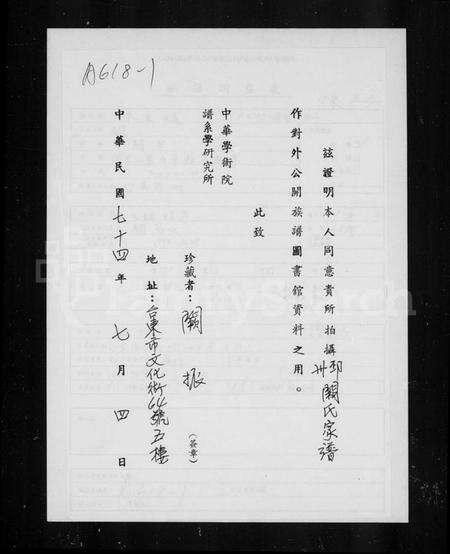 A618-1
茲證明本人同意貴所拍攝邳州闞氏家譜
作對外公開族譜圖書館資料之用。
此致
中華學術院
譜系學研究所
珍藏者：闞振(簽章)
地址：台東市文化街64號五樓
中華民國七十四年七月四日
FamilySearch